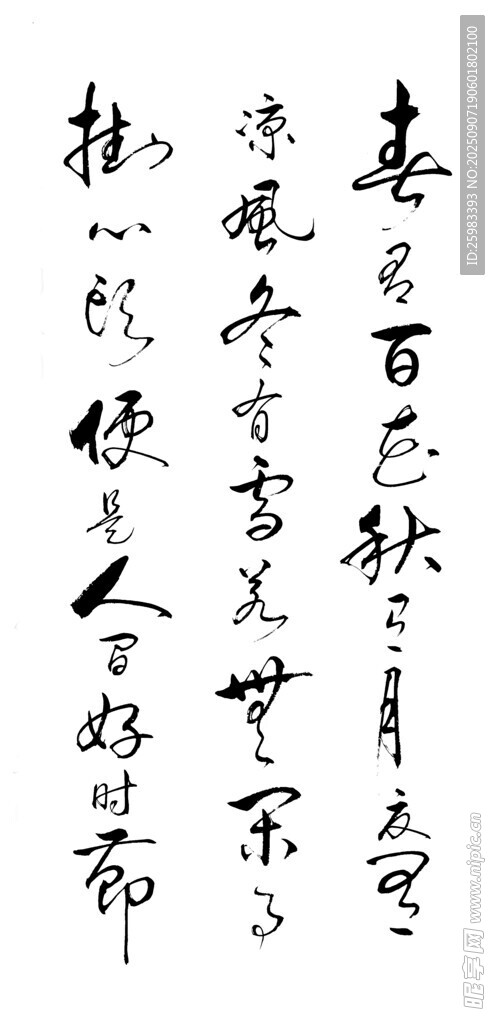 春有百花秋有月夏有
凉風冬有雪若無閑事
掛心头便是人间好时節
ID:25983393 NO:20250907190601802100
昵享网 www.nipic.cn